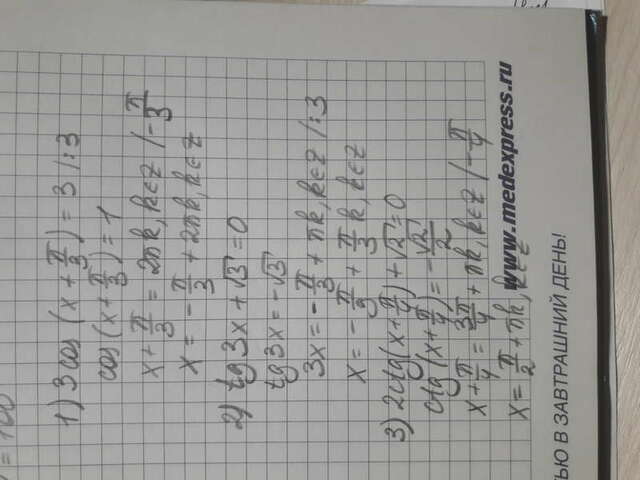 = 100
1) 3 cos (x + π/3) = 3 /:3
cos (x + π/3) = 1
x + π/3 = 2πk, k∈Z / -π/3
x = -π/3 + 2πk, k∈Z
2) tg 3x + √3 = 0
tg 3x = -√3
3x = -π/3 + πk, k∈Z /:3
x = -π/9 + π/3 k, k∈Z
3) 2 ctg (x + π/4) + √2 = 0
ctg (x + π/4) = -√2/2
x + π/4 = 3π/4 + πk, k∈Z / -π/4
x = π/2 + πk, k∈Z
www.medexpress.ru
ТЬЮ В ЗАВТРАШНИЙ ДЕНЬ!